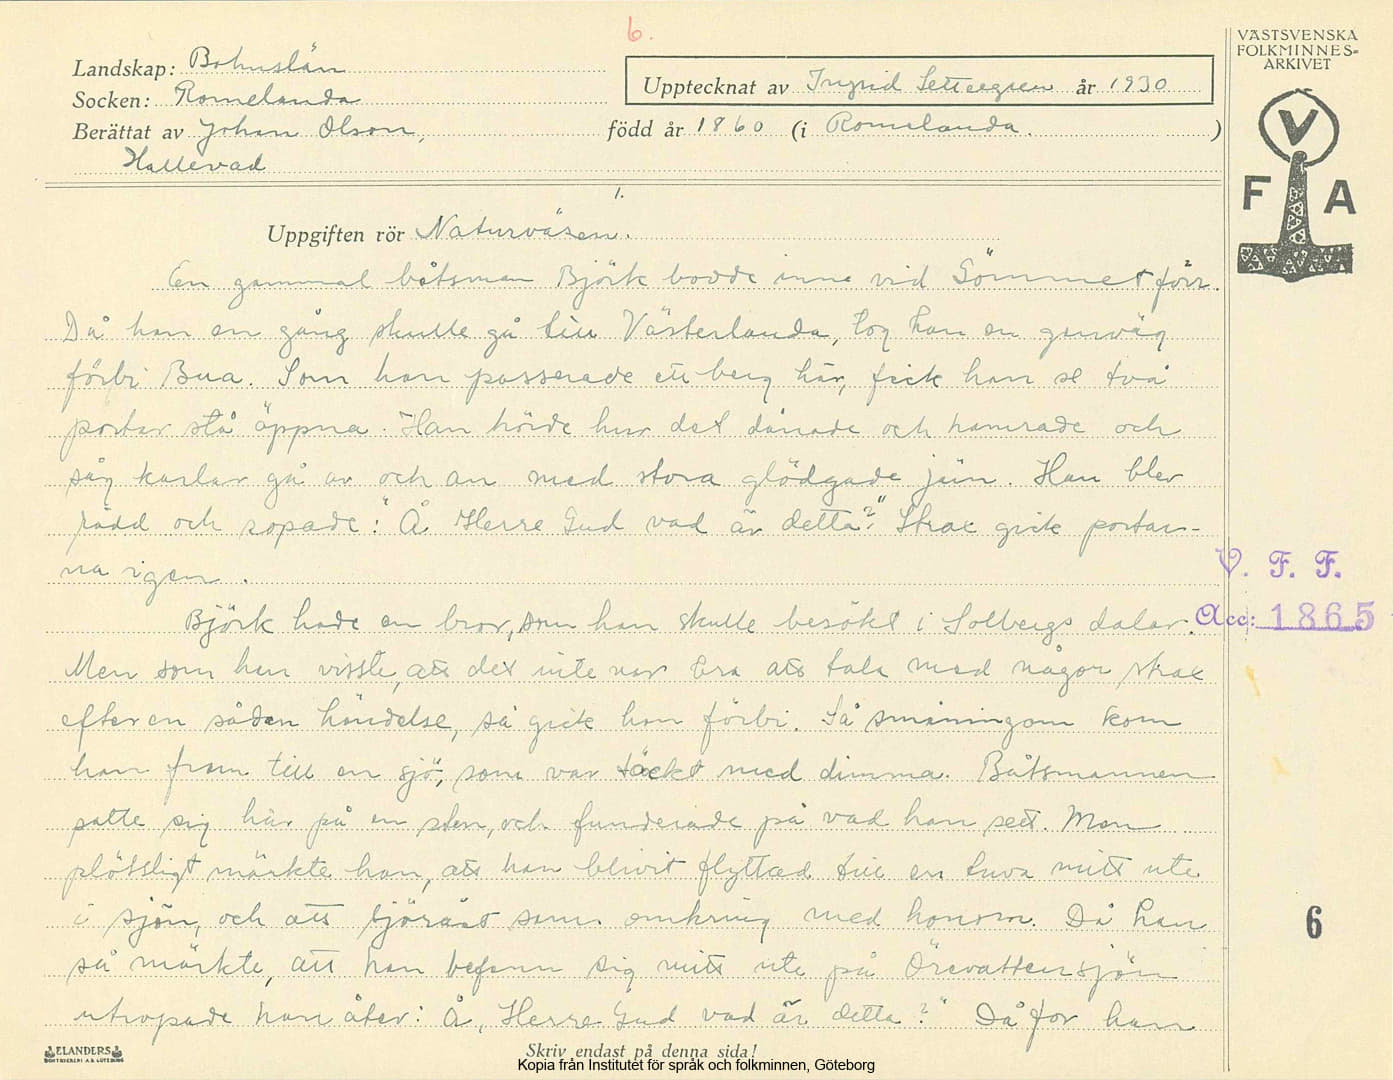 6.
VÄSTSVENSKA
FOLKMINNES=
ARKIVET
V
F A
Landskap: Bohuslän
Socken: Romelanda
Upptecknat av Ingrid år 1930
Berättat av Johan Olson, född år 1860 (i Romelanda. )
Hallevad
1.
Uppgiften rör Naturväsen.
En gammal båtsman Björk bodde inne vid förr.
Då han en gång skulle gå till Västerlanda, tog han en genväg
förbi Bua. Som han passerade ett berg här, fick han se två
portar stå öppna. Han hörde hur det dånade och hamrade och
såg karlar gå av och an med stora glödgade järn. Han blev
rädd och ropade: "Å Herre Gud vad är detta?" Strax gick portar-
na igen.
Björk hade en bror, som han skulle besökt i Solbergs dalar.
Men som han visste, att det inte var bra att tala med någor strax
efter en sådan händelse, så gick han förbi. Så småningom kom
han fram till en sjö, som var täckt med dimma. Båtsmannen
satte sig här på en sten, och funderade på vad han sett. Men
plötsligt märkte han, att han blivit flyttad till en tuva mitt ute
i sjön, och att sjörået sam omkring med honom. Då han
så märkte, att han befann sig mitt ute på Örevattensjön
utropade han åter: Å, Herre Gud vad är detta?" Då for han
V. F. F.
Acc: 1865
6
ELANDERS
BOKTRYCKERI A.B. GÖTEBORG
Skriv endast på denna sida!
Kopia från Institutet för språk och folkminnen, Göteborg